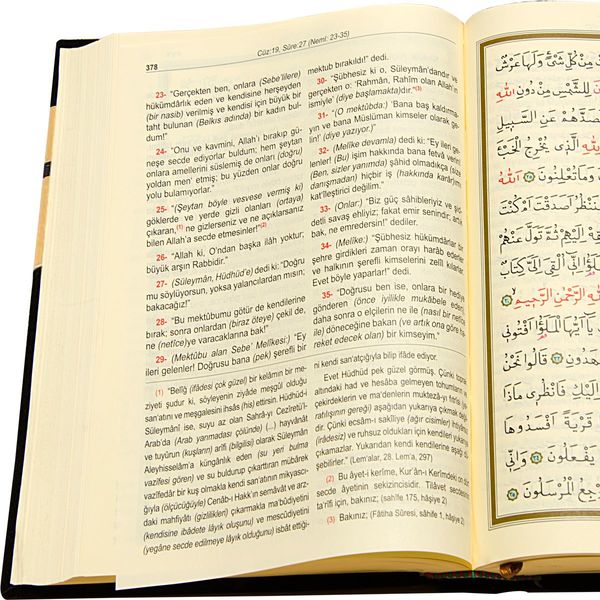 Cüz:19, Sûre:27 (Neml: 23-35)
378
23- "Gerçekten ben, onlara (Sebe'lilere)
hükümdârlık eden ve kendisine herşeyden
(bir nasib) verilmiş ve kendisi için büyük bir
taht bulunan (Belkıs adında) bir kadın bul-
dum!"
24- "Onu ve kavmini, Allah'ı bırakıp gü-
neşe secde ediyorlar buldum; hem şeytan
onlara amellerini süslemiş de onları (doğru)
yoldan men' etmiş; bu yüzden onlar doğru
yolu bulamıyorlar."
25- "(Şeytan böyle vesvese vermiş ki)
göklerde ve yerde gizli olanları (ortaya)
çıkaran,(1) ne gizlerseniz ve ne açıklarsanız
bilen Allah'a secde etmesinler!"(2)
26- "Allah ki, O'ndan başka ilâh yoktur;
büyük arşın Rabbidir."
27- (Süleymân, Hüdhüd'e) dedi ki: "Doğru
mu söylüyorsun, yoksa yalancılardan mısın;
bakacağız!"
28- "Bu mektûbumu götür de kendilerine
bırak; sonra onlardan (biraz öteye) çekil de,
ne (netîce)ye varacaklarına bak!"
29- (Mektûbu alan Sebe' Melîkesi:) "Ey
ileri gelenler! Doğrusu bana (pek) şerefli bir
mektub bırakıldı!" dedi.
30- "Şübhesiz ki o, Süleymân'dandır ve
gerçekten o: 'Rahmân, Rahîm olan Allah'ın
ismiyle' (diye başlamakta)dır."(3)
31- "(O mektûbda:) 'Bana baş kaldırma-
yın ve bana Müslüman kimseler olarak ge-
lin!' (diye yazıyor.)"
32- (Melîke devamla) dedi ki: "Ey ileri ge-
lenler! (Bu) işim hakkında bana fetvâ verin!
(Ben, sizler yanımda) şâhid olmadıkça (size
danışmadan) hiçbir iş (hakkında karâr)ımı
kat'îleştirici değilim."
33- (Onlar:) "Biz güç sâhibleriyiz ve şid-
detli savaş ehliyiz; fakat emir senindir; artık
bak, ne emredersin!" dediler.
34- (Melîke:) "Şübhesiz hükümdârlar bir
şehre girdikleri zaman orayı harâb ederler
ve halkının şerefli kimselerini zelîl kılarlar.
Evet böyle yaparlar!" dedi.
35- "Doğrusu ben ise, onlara bir hediye
gönderen (önce iyilikle mukābele eden),
daha sonra o elçilerin ne ile (nasıl bir netîce
ile) döneceğine bakan (ve artık ona göre ha-
reket edecek olan) bir kimseyim."
(1) "Belîğ (ifâdesi çok güzel) bir kelâmın bir me-
ziyeti şudur ki, söyleyenin ziyâde meşgūl olduğu
san'atını ve meşgalesini ihsâs (his) ettirsin. Hüdhüd-i
Süleymânî ise, suyu az olan Sahrâ-yı Cezîretü'l-
Arab'da (Arab yarımadası çölünde) (...) hayvânât
ve tuyûrun (kuşların) arîfi (bilgisi) olarak Süleymân
Aleyhisselâm'a küngânlık eden (su yeri bulma
vazîfesi gören) ve su buldurup çıkartıran mübârek
vazîfedâr bir kuş olmakla kendi san'atının mikyascı-
ğıyla (ölçücüğüyle) Cenâb-ı Hakk'ın semâvât ve arz-
daki mahfiyâtı (gizlilikleri) çıkarmakla ma'bûdiyetini
(kendisine ibâdete lâyık oluşunu) ve mescûdiyetini
(yegâne secde edilmeye lâyık olduğunu) isbât ettiği-
ni kendi san'atçığıyla bilip ifâde ediyor.
Evet Hüdhüd pek güzel görmüş. Çünki toprak
altındaki had ve hesâba gelmeyen tohumların ve
çekirdeklerin ve ma'denlerin muktezâ-yı fıtrîsi (ya-
ratılışının gereği) aşağıdan yukarıya çıkmak değil-
dir. Çünki ecsâm-ı sakîliye (ağır cisimler) ihtiyârsız
(irâdesiz) ve ruhsuz oldukları için kendileri yukarıya
çıkamazlar. Yukarıdan kendi kendilerine aşağı dü-
şebilirler." (Lem'alar, 28. Lem'a, 297)
(2) Bu âyet-i kerîme, Kur'ân-ı Kerîmdeki on dört
secde âyetinin sekizincisidir. Tilâvet secdesinin
ta'rîfi için, bakınız; (sahîfe 175, hâşiye 2)
(3) Bakınız; (Fâtiha Sûresi, sâhife 1, hâşiye 2)
مِنْ كُلِّ شَيْءٍ وَلَهَا عَرْشٌ
لِلشَّمْسِ مِنْ دُونِ اللّٰهِ
فَصَدَّهُمْ عَنِ السَّبِيلِ
الَّذِي يُخْرِجُ الْخَبْءَ
وَمَا تُعْلِنُونَ ﴿٢٥﴾ اَللّٰهُ
سَنَنْظُرُ اَصَدَقْتَ اَمْ كُنْتَ
اِلَيْهِمْ ثُمَّ تَوَلَّ عَنْهُمْ
اِنِّي اُلْقِيَ اِلَيَّ كِتَابٌ
اللّٰهِ الرَّحْمٰنِ الرَّحِيمِ
يَا اَيُّهَا الْمَلَؤُا اَفْتُونِي
قَالُوا نَحْنُ
اِلَيْكِ فَانْظُرِي مَاذَا
قَرْيَةً اَفْسَدُوهَا
يَفْعَلُونَ ﴿٣٤﴾ وَاِنِّي
يَرْجِعُ الْمُرْسَلُونَ ﴿٣٥﴾